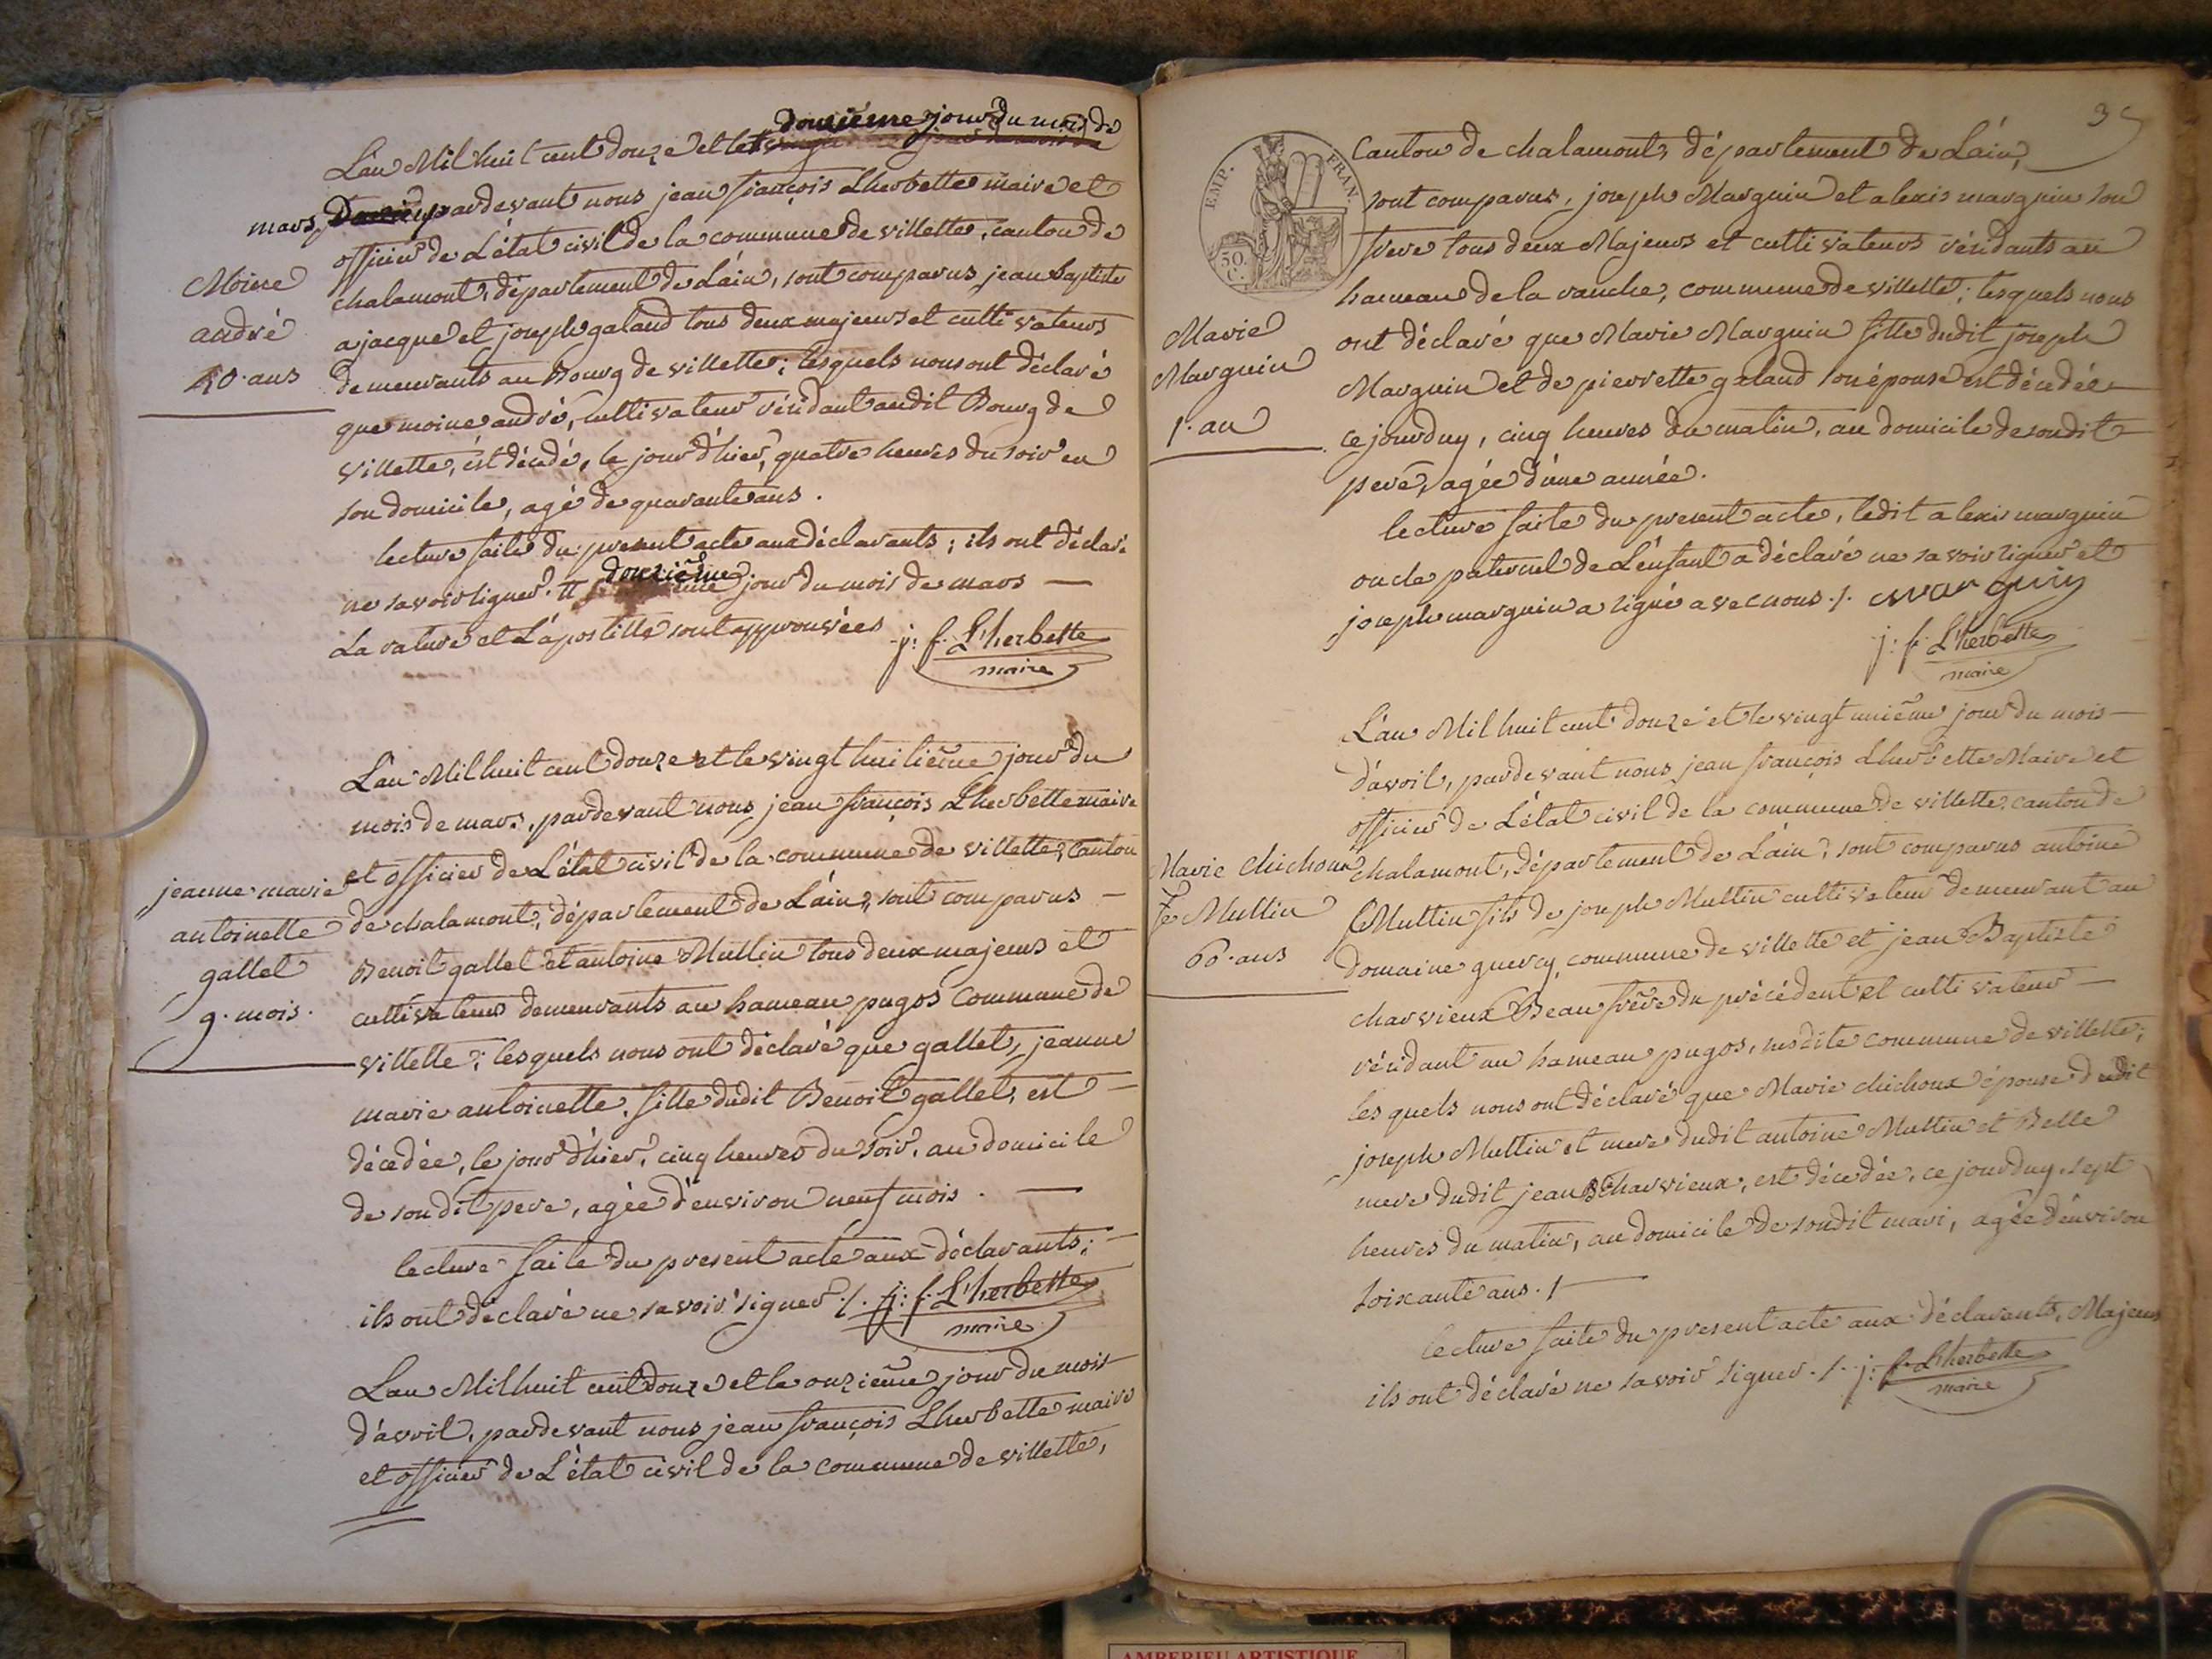 douzième jour du mois de
L'an Mil huit cent douze et le
mars, pardevant nous jean françois Lherbette maire et
officier de L'état civil de la commune de villette, canton de
chalamont, département de L'ain, sont comparus jean baptiste
ajacque et joseph galand tous deux majeurs et cultivateurs
demeurants au Bourg de villette; lesquels nous ont déclaré
que moine andré, cultivateur résidant audit Bourg de
villette, est décédé, le jour d'hier, quatre heures du soir en
son domicile, agé de quarante ans.
lecture faite du present acte aux déclarants; ils ont déclaré
ne savoir signer. douzième jour du mois de mars —
La rature et L'apostille sont approuvées
j: f. L'herbette
maire
Moine
andré
40. ans
L'an Mil huit cent douze et le vingt huitième jour du
mois de mars, pardevant nous jean françois Lherbette maire
et officier de L'état civil de la commune de villette, canton
de chalamont, département de L'ain, sont comparus —
Benoit gallet et antoine Mullin tous deux majeurs et
cultivateurs demeurants au hameau pugos commune de
villette; lesquels nous ont déclaré que gallet, jeanne
marie antoinette, fille dudit Benoit gallet, est —
décédée, le jour d'hier, cinq heures du soir, au domicile
de son dit pere, agée d'environ neuf mois. —
lecture faite du present acte aux déclarants; —
ils ont déclaré ne savoir signer ./. j: f. L'herbette
maire
jeanne marie
antoinette
gallet
9. mois.
L'an Mil huit cent douze et le onzième jour du mois
d'avril, pardevant nous jean françois Lherbette maire
et officier de L'état civil de la commune de villette,
EMP. FRAN.
50.
C.
35
Canton de chalamont, département de L'ain,
sont comparus, joseph Marguin et alexis marguin son
frere tous deux Majeurs et cultivateurs résidants au
hameau de la ranche, commune de villette; lesquels nous
ont déclaré que Marie Marguin fille dudit joseph
Marguin et de pierrette galand son épouse est décédée
ce jourduy, cinq heures du matin, au domicile de sondit
pere, agée d'une année.
lecture faite du present acte, ledit alexis marguin
oncle paternel de L'enfant a déclaré ne savoir signer et
joseph marguin a signé avec nous ./. marguin
j: f. L'herbette
maire
Marie
Marguin
1. an
L'an Mil huit cent douze et le vingt unième jour du mois —
d'avril, pardevant nous jean françois Lherbette Maire et
officier de L'état civil de la commune de villette, canton de
chalamont, département de L'ain, sont comparus antoine
Mullin fils de joseph Mullin cultivateur demeurant au
domaine guercy, commune de villette et jean Baptiste
charvieux Beau frère du précédent et cultivateur —
résidant au hameau pugos, susdite commune de villette;
lesquels nous ont déclaré que Marie chichoux épouse dudit
joseph Mullin et mere dudit antoine Mullin et Belle
mere dudit jean B. Charvieux, est décédée, ce jourduy, sept
heures du matin, au domicile de sondit mari, agée d'environ
soixante ans. /
lecture faite du present acte aux déclarants, Majeurs
ils ont déclaré ne savoir signer ./. j: f. L'herbette
maire
Marie chichoux
fe Mullin
60. ans
AMBERIEU ARTISTIQUE